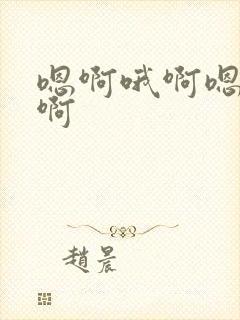 嗯啊哦啊嗯
啊
趙晨